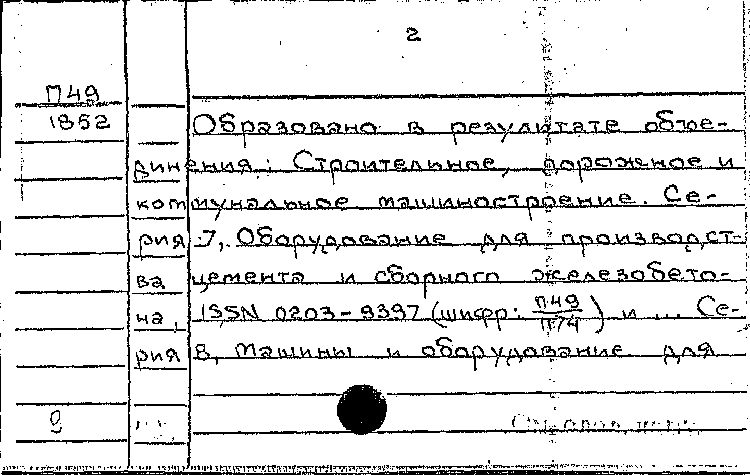 2
П49
1852
Образовано в результате объе-
динения: Строительное, дорожное и
коммунальное машиностроение. Се-
рия 7, Оборудование для производст-
ва цемента и сборного железобето-
на, ISSN 0203-9397 (шифр: П49/П74) и ... Се-
рия 8, Машины и оборудование для
9